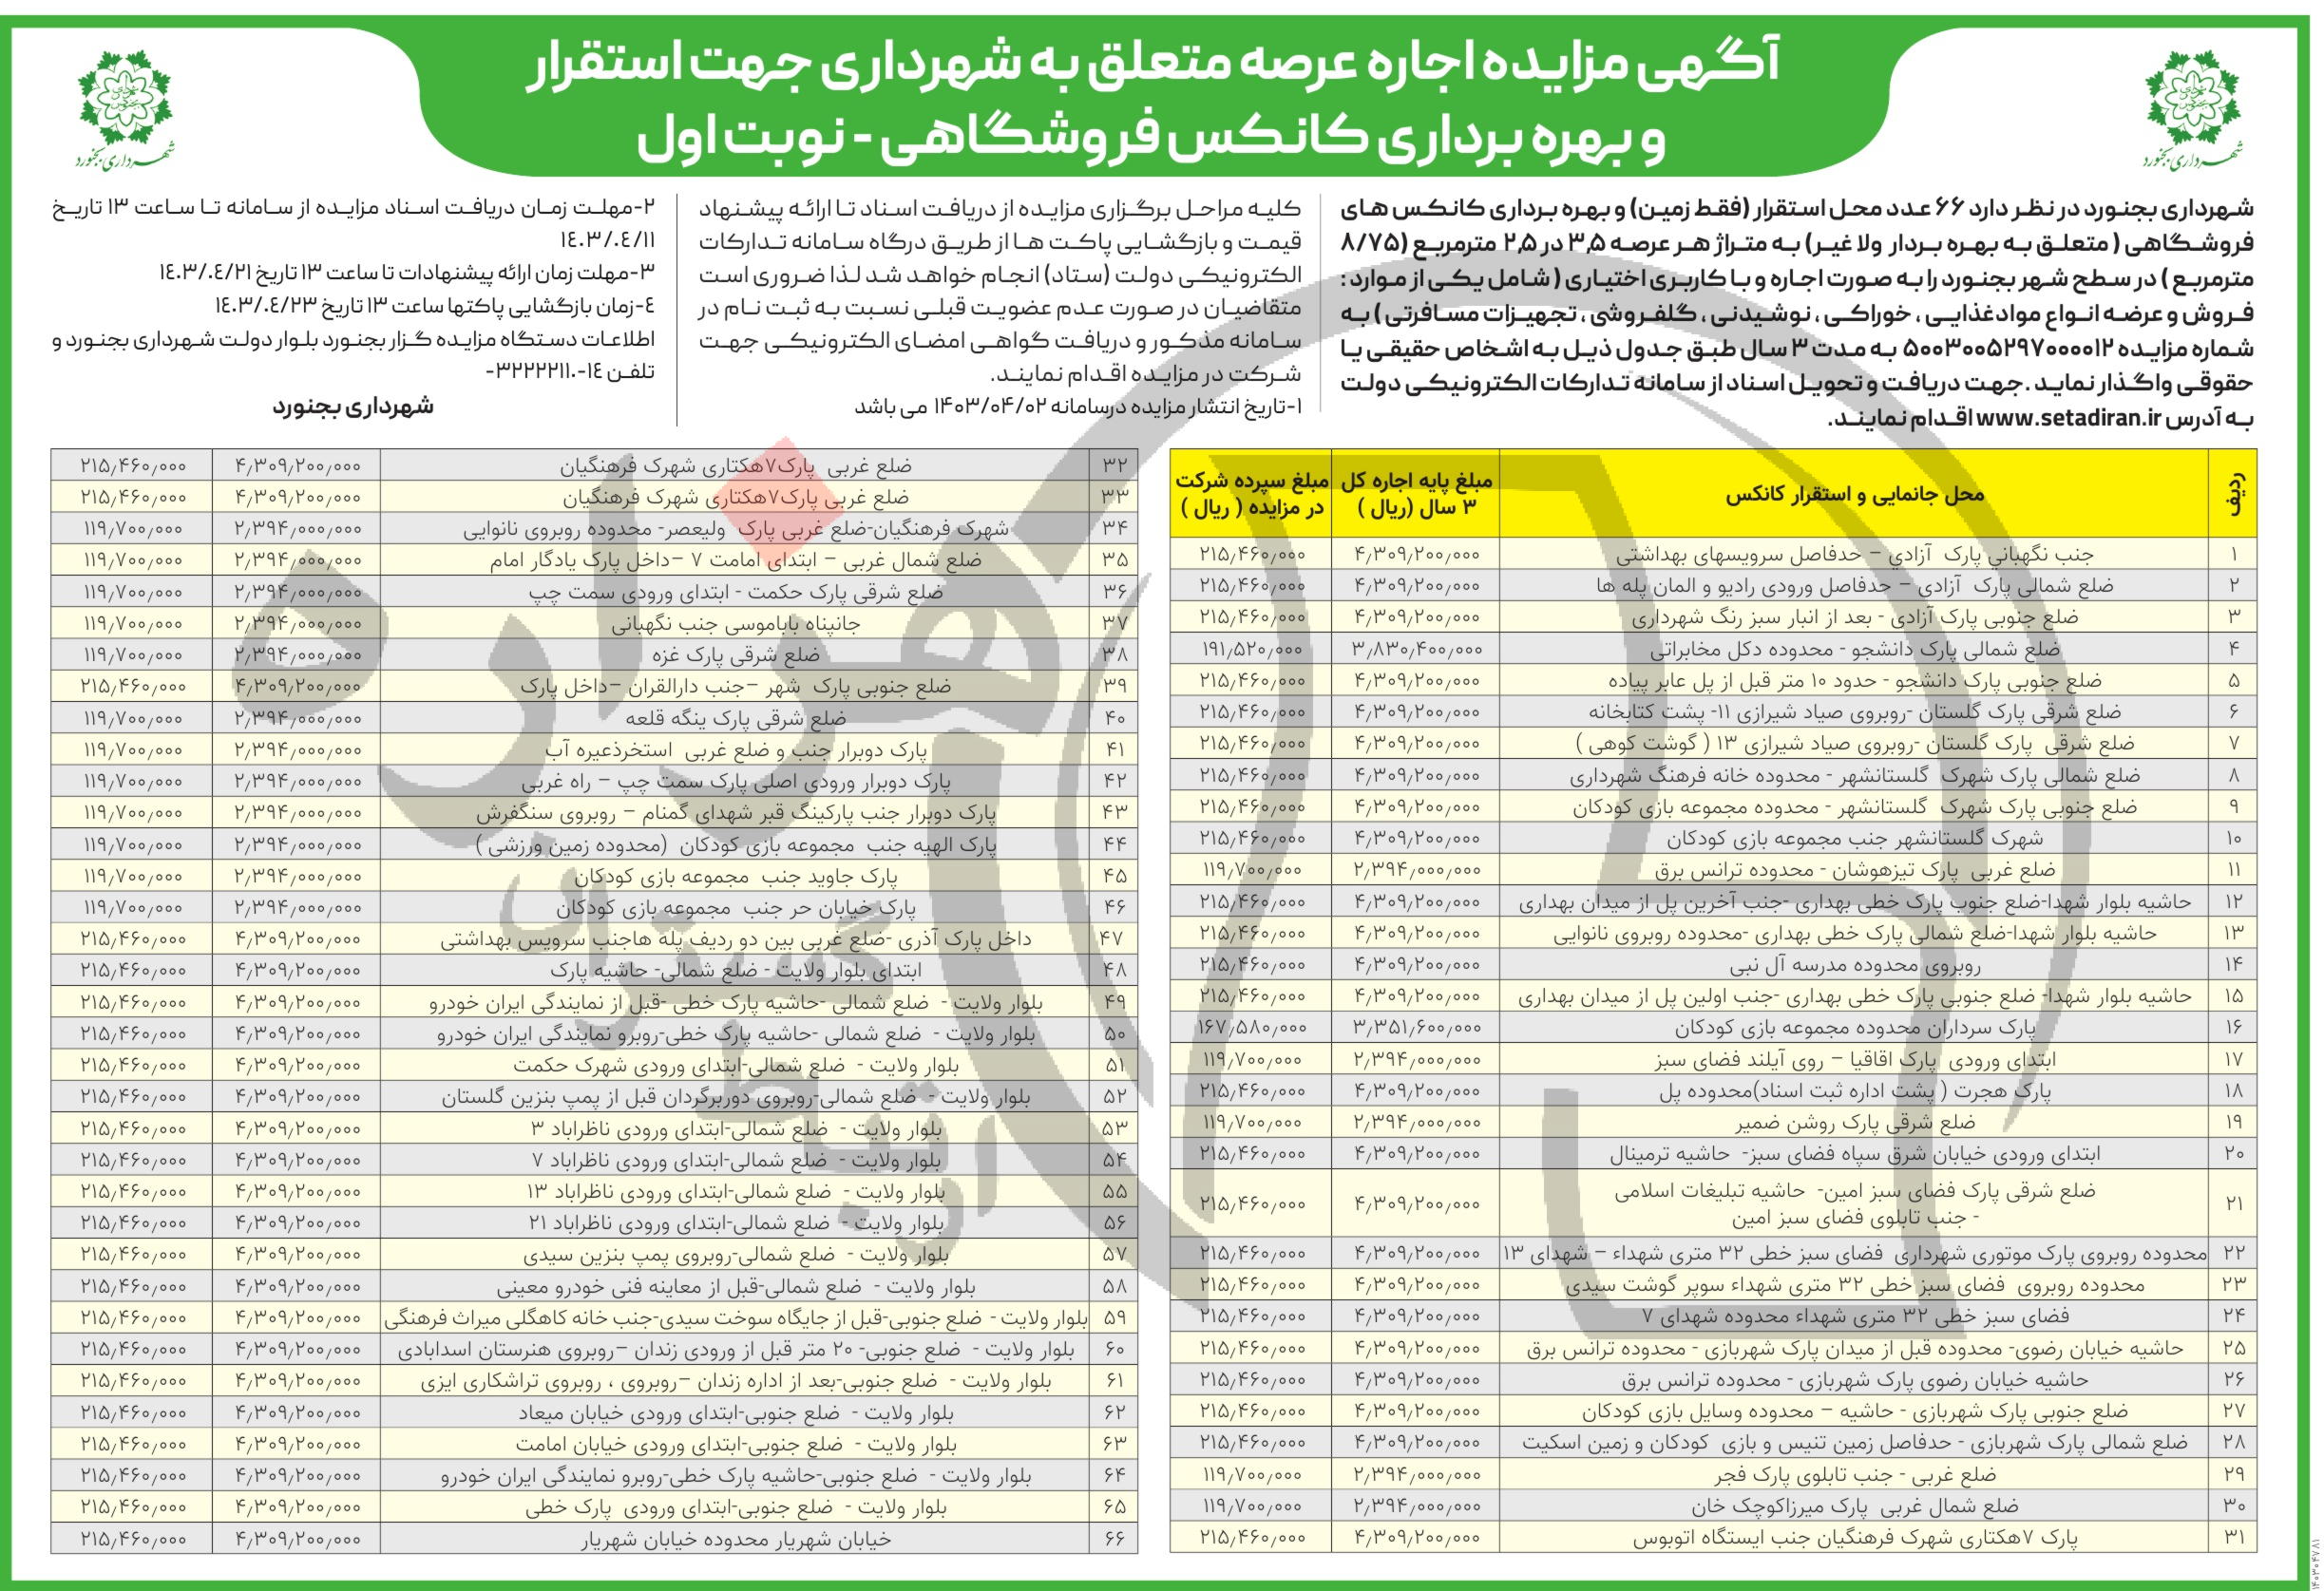 آگهی مزایده اجاره عرصه متعلق به شهرداری جهت استقرار
و بهره برداری کانکس فروشگاهی - نوبت اول
شهرداری بجنورد
شهرداری بجنورد
شهرداری بجنورد در نظر دارد ۶۶ عدد محل استقرار (فقط زمین) و بهره برداری کانکس های
فروشگاهی (متعلق به بهره بردار ولا غیر) به متراژ هر عرصه ۳٫۵ در ۲٫۵ مترمربع (۸/۷۵
مترمربع) در سطح شهر بجنورد را به صورت اجاره و با کاربری اختیاری (شامل یکی از موارد :
فروش و عرضه انواع موادغذایی ، خوراکی ، نوشیدنی ، گلفروشی ، تجهیزات مسافرتی) به
شماره مزایده ۵۰۰۳۰۰۵۲۹۷۰۰۰۰۱۲ به مدت ۳ سال طبق جدول ذیل به اشخاص حقیقی یا
حقوقی واگذار نماید . جهت دریافت و تحویل اسناد از سامانه تدارکات الکترونیکی دولت
به آدرس www.setadiran.ir اقدام نمایند.
کلیه مراحل برگزاری مزایده از دریافت اسناد تا ارائه پیشنهاد
قیمت و بازگشایی پاکت ها از طریق درگاه سامانه تدارکات
الکترونیکی دولت (ستاد) انجام خواهد شد لذا ضروری است
متقاضیان در صورت عدم عضویت قبلی نسبت به ثبت نام در
سامانه مذکور و دریافت گواهی امضای الکترونیکی جهت
شرکت در مزایده اقدام نمایند.
۱-تاریخ انتشار مزایده درسامانه ۱۴۰۳/۰۴/۰۲ می باشد
۲-مهلت زمان دریافت اسناد مزایده از سامانه تا ساعت ۱۳ تاریخ
۱٤۰۳/۰٤/۱۱
۳-مهلت زمان ارائه پیشنهادات تا ساعت ۱۳ تاریخ ۱٤۰۳/۰٤/۲۱
٤-زمان بازگشایی پاکتها ساعت ۱۳ تاریخ ۱٤۰۳/۰٤/۲۳
اطلاعات دستگاه مزایده گزار بجنورد بلوار دولت شهرداری بجنورد و
تلفن ۱٤-۳۲۲۲۲۱۱۰-
شهرداری بجنورد
ردیف محل جانمایی و استقرار کانکس مبلغ پایه اجاره کل ۳ سال (ریال ) مبلغ سپرده شرکت در مزایده ( ریال )
۱ جنب نگهباني پارک آزادي – حدفاصل سرویسهای بهداشتی ۴٫۳۰۹٫۲۰۰٫۰۰۰ ۲۱۵٫۴۶۰٫۰۰۰
۲ ضلع شمالی پارک آزادی – حدفاصل ورودی رادیو و المان پله ها ۴٫۳۰۹٫۲۰۰٫۰۰۰ ۲۱۵٫۴۶۰٫۰۰۰
۳ ضلع جنوبی پارک آزادی - بعد از انبار سبز رنگ شهرداری ۴٫۳۰۹٫۲۰۰٫۰۰۰ ۲۱۵٫۴۶۰٫۰۰۰
۴ ضلع شمالی پارک دانشجو - محدوده دکل مخابراتی ۳٫۸۳۰٫۴۰۰٫۰۰۰ ۱۹۱٫۵۲۰٫۰۰۰
۵ ضلع جنوبی پارک دانشجو - حدود ۱۰ متر قبل از پل عابر پیاده ۴٫۳۰۹٫۲۰۰٫۰۰۰ ۲۱۵٫۴۶۰٫۰۰۰
۶ ضلع شرقی پارک گلستان -روبروی صیاد شیرازی ۱۱- پشت کتابخانه ۴٫۳۰۹٫۲۰۰٫۰۰۰ ۲۱۵٫۴۶۰٫۰۰۰
۷ ضلع شرقی پارک گلستان -روبروی صیاد شیرازی ۱۳ ( گوشت کوهی ) ۴٫۳۰۹٫۲۰۰٫۰۰۰ ۲۱۵٫۴۶۰٫۰۰۰
۸ ضلع شمالی پارک شهرک گلستانشهر - محدوده خانه فرهنگ شهرداری ۴٫۳۰۹٫۲۰۰٫۰۰۰ ۲۱۵٫۴۶۰٫۰۰۰
۹ ضلع جنوبی پارک شهرک گلستانشهر - محدوده مجموعه بازی کودکان ۴٫۳۰۹٫۲۰۰٫۰۰۰ ۲۱۵٫۴۶۰٫۰۰۰
۱۰ شهرک گلستانشهر جنب مجموعه بازی کودکان ۴٫۳۰۹٫۲۰۰٫۰۰۰ ۲۱۵٫۴۶۰٫۰۰۰
۱۱ ضلع غربی پارک تیزهوشان - محدوده ترانس برق ۲٫۳۹۴٫۰۰۰٫۰۰۰ ۱۱۹٫۷۰۰٫۰۰۰
۱۲ حاشیه بلوار شهدا-ضلع جنوب پارک خطی بهداری -جنب آخرین پل از میدان بهداری ۴٫۳۰۹٫۲۰۰٫۰۰۰ ۲۱۵٫۴۶۰٫۰۰۰
۱۳ حاشیه بلوار شهدا-ضلع شمالی پارک خطی بهداری -محدوده روبروی نانوایی ۴٫۳۰۹٫۲۰۰٫۰۰۰ ۲۱۵٫۴۶۰٫۰۰۰
۱۴ روبروی محدوده مدرسه آل نبی ۴٫۳۰۹٫۲۰۰٫۰۰۰ ۲۱۵٫۴۶۰٫۰۰۰
۱۵ حاشیه بلوار شهدا- ضلع جنوبی پارک خطی بهداری -جنب اولین پل از میدان بهداری ۴٫۳۰۹٫۲۰۰٫۰۰۰ ۲۱۵٫۴۶۰٫۰۰۰
۱۶ پارک سرداران محدوده مجموعه بازی کودکان ۳٫۳۵۱٫۶۰۰٫۰۰۰ ۱۶۷٫۵۸۰٫۰۰۰
۱۷ ابتدای ورودی پارک اقاقیا – روی آیلند فضای سبز ۲٫۳۹۴٫۰۰۰٫۰۰۰ ۱۱۹٫۷۰۰٫۰۰۰
۱۸ پارک هجرت ( پشت اداره ثبت اسناد)محدوده پل ۴٫۳۰۹٫۲۰۰٫۰۰۰ ۲۱۵٫۴۶۰٫۰۰۰
۱۹ ضلع شرقی پارک روشن ضمیر ۲٫۳۹۴٫۰۰۰٫۰۰۰ ۱۱۹٫۷۰۰٫۰۰۰
۲۰ ابتدای ورودی خیابان شرق سپاه فضای سبز- حاشیه ترمینال ۴٫۳۰۹٫۲۰۰٫۰۰۰ ۲۱۵٫۴۶۰٫۰۰۰
۲۱ ضلع شرقی پارک فضای سبز امین- حاشیه تبلیغات اسلامی
- جنب تابلوی فضای سبز امین ۴٫۳۰۹٫۲۰۰٫۰۰۰ ۲۱۵٫۴۶۰٫۰۰۰
۲۲ محدوده روبروی پارک موتوری شهرداری فضای سبز خطی ۳۲ متری شهداء – شهدای ۱۳ ۴٫۳۰۹٫۲۰۰٫۰۰۰ ۲۱۵٫۴۶۰٫۰۰۰
۲۳ محدوده روبروی فضای سبز خطی ۳۲ متری شهداء سوپر گوشت سیدی ۴٫۳۰۹٫۲۰۰٫۰۰۰ ۲۱۵٫۴۶۰٫۰۰۰
۲۴ فضای سبز خطی ۳۲ متری شهداء محدوده شهدای ۷ ۴٫۳۰۹٫۲۰۰٫۰۰۰ ۲۱۵٫۴۶۰٫۰۰۰
۲۵ حاشیه خیابان رضوی- محدوده قبل از میدان پارک شهربازی - محدوده ترانس برق ۴٫۳۰۹٫۲۰۰٫۰۰۰ ۲۱۵٫۴۶۰٫۰۰۰
۲۶ حاشیه خیابان رضوی پارک شهربازی - محدوده ترانس برق ۴٫۳۰۹٫۲۰۰٫۰۰۰ ۲۱۵٫۴۶۰٫۰۰۰
۲۷ ضلع جنوبی پارک شهربازی - حاشیه – محدوده وسایل بازی کودکان ۴٫۳۰۹٫۲۰۰٫۰۰۰ ۲۱۵٫۴۶۰٫۰۰۰
۲۸ ضلع شمالی پارک شهربازی - حدفاصل زمین تنیس و بازی کودکان و زمین اسکیت ۴٫۳۰۹٫۲۰۰٫۰۰۰ ۲۱۵٫۴۶۰٫۰۰۰
۲۹ ضلع غربی - جنب تابلوی پارک فجر ۲٫۳۹۴٫۰۰۰٫۰۰۰ ۱۱۹٫۷۰۰٫۰۰۰
۳۰ ضلع شمال غربی پارک میرزاکوچک خان ۲٫۳۹۴٫۰۰۰٫۰۰۰ ۱۱۹٫۷۰۰٫۰۰۰
۳۱ پارک ۷هکتاری شهرک فرهنگیان جنب ایستگاه اتوبوس ۴٫۳۰۹٫۲۰۰٫۰۰۰ ۲۱۵٫۴۶۰٫۰۰۰
۳۲ ضلع غربی پارک۷هکتاری شهرک فرهنگیان ۴٫۳۰۹٫۲۰۰٫۰۰۰ ۲۱۵٫۴۶۰٫۰۰۰
۳۳ ضلع غربی پارک۷هکتاری شهرک فرهنگیان ۴٫۳۰۹٫۲۰۰٫۰۰۰ ۲۱۵٫۴۶۰٫۰۰۰
۳۴ شهرک فرهنگیان-ضلع غربی پارک ولیعصر- محدوده روبروی نانوایی ۲٫۳۹۴٫۰۰۰٫۰۰۰ ۱۱۹٫۷۰۰٫۰۰۰
۳۵ ضلع شمال غربی – ابتدای امامت ۷ –داخل پارک یادگار امام ۲٫۳۹۴٫۰۰۰٫۰۰۰ ۱۱۹٫۷۰۰٫۰۰۰
۳۶ ضلع شرقی پارک حکمت - ابتدای ورودی سمت چپ ۲٫۳۹۴٫۰۰۰٫۰۰۰ ۱۱۹٫۷۰۰٫۰۰۰
۳۷ جانپناه باباموسی جنب نگهبانی ۲٫۳۹۴٫۰۰۰٫۰۰۰ ۱۱۹٫۷۰۰٫۰۰۰
۳۸ ضلع شرقی پارک غزه ۲٫۳۹۴٫۰۰۰٫۰۰۰ ۱۱۹٫۷۰۰٫۰۰۰
۳۹ ضلع جنوبی پارک شهر –جنب دارالقران –داخل پارک ۴٫۳۰۹٫۲۰۰٫۰۰۰ ۲۱۵٫۴۶۰٫۰۰۰
۴۰ ضلع شرقی پارک ینگه قلعه ۲٫۳۹۴٫۰۰۰٫۰۰۰ ۱۱۹٫۷۰۰٫۰۰۰
۴۱ پارک دوبرار جنب و ضلع غربی استخرذعیره آب ۲٫۳۹۴٫۰۰۰٫۰۰۰ ۱۱۹٫۷۰۰٫۰۰۰
۴۲ پارک دوبرار ورودی اصلی پارک سمت چپ – راه غربی ۲٫۳۹۴٫۰۰۰٫۰۰۰ ۱۱۹٫۷۰۰٫۰۰۰
۴۳ پارک دوبرار جنب پارکینگ قبر شهدای گمنام – روبروی سنگفرش ۲٫۳۹۴٫۰۰۰٫۰۰۰ ۱۱۹٫۷۰۰٫۰۰۰
۴۴ پارک الهیه جنب مجموعه بازی کودکان (محدوده زمین ورزشی ) ۲٫۳۹۴٫۰۰۰٫۰۰۰ ۱۱۹٫۷۰۰٫۰۰۰
۴۵ پارک جاوید جنب مجموعه بازی کودکان ۲٫۳۹۴٫۰۰۰٫۰۰۰ ۱۱۹٫۷۰۰٫۰۰۰
۴۶ پارک خیابان حر جنب مجموعه بازی کودکان ۲٫۳۹۴٫۰۰۰٫۰۰۰ ۱۱۹٫۷۰۰٫۰۰۰
۴۷ داخل پارک آذری -ضلع غربی بین دو ردیف پله هاجنب سرویس بهداشتی ۴٫۳۰۹٫۲۰۰٫۰۰۰ ۲۱۵٫۴۶۰٫۰۰۰
۴۸ ابتدای بلوار ولایت - ضلع شمالی- حاشیه پارک ۴٫۳۰۹٫۲۰۰٫۰۰۰ ۲۱۵٫۴۶۰٫۰۰۰
۴۹ بلوار ولایت - ضلع شمالی -حاشیه پارک خطی -قبل از نمایندگی ایران خودرو ۴٫۳۰۹٫۲۰۰٫۰۰۰ ۲۱۵٫۴۶۰٫۰۰۰
۵۰ بلوار ولایت - ضلع شمالی -حاشیه پارک خطی-روبرو نمایندگی ایران خودرو ۴٫۳۰۹٫۲۰۰٫۰۰۰ ۲۱۵٫۴۶۰٫۰۰۰
۵۱ بلوار ولایت - ضلع شمالی-ابتدای ورودی شهرک حکمت ۴٫۳۰۹٫۲۰۰٫۰۰۰ ۲۱۵٫۴۶۰٫۰۰۰
۵۲ بلوار ولایت - ضلع شمالی-روبروی دوربرگردان قبل از پمپ بنزین گلستان ۴٫۳۰۹٫۲۰۰٫۰۰۰ ۲۱۵٫۴۶۰٫۰۰۰
۵۳ بلوار ولایت - ضلع شمالی-ابتدای ورودی ناظراباد ۳ ۴٫۳۰۹٫۲۰۰٫۰۰۰ ۲۱۵٫۴۶۰٫۰۰۰
۵۴ بلوار ولایت - ضلع شمالی-ابتدای ورودی ناظراباد ۷ ۴٫۳۰۹٫۲۰۰٫۰۰۰ ۲۱۵٫۴۶۰٫۰۰۰
۵۵ بلوار ولایت - ضلع شمالی-ابتدای ورودی ناظراباد ۱۳ ۴٫۳۰۹٫۲۰۰٫۰۰۰ ۲۱۵٫۴۶۰٫۰۰۰
۵۶ بلوار ولایت - ضلع شمالی-ابتدای ورودی ناظراباد ۲۱ ۴٫۳۰۹٫۲۰۰٫۰۰۰ ۲۱۵٫۴۶۰٫۰۰۰
۵۷ بلوار ولایت - ضلع شمالی-روبروی پمپ بنزین سیدی ۴٫۳۰۹٫۲۰۰٫۰۰۰ ۲۱۵٫۴۶۰٫۰۰۰
۵۸ بلوار ولایت - ضلع شمالی-قبل از معاینه فنی خودرو معینی ۴٫۳۰۹٫۲۰۰٫۰۰۰ ۲۱۵٫۴۶۰٫۰۰۰
۵۹ بلوار ولایت - ضلع جنوبی-قبل از جایگاه سوخت سیدی-جنب خانه کاهگلی میراث فرهنگی ۴٫۳۰۹٫۲۰۰٫۰۰۰ ۲۱۵٫۴۶۰٫۰۰۰
۶۰ بلوار ولایت - ضلع جنوبی- ۲۰ متر قبل از ورودی زندان –روبروی هنرستان اسدابادی ۴٫۳۰۹٫۲۰۰٫۰۰۰ ۲۱۵٫۴۶۰٫۰۰۰
۶۱ بلوار ولایت - ضلع جنوبی-بعد از اداره زندان –روبروی ، روبروی تراشکاری ایزی ۴٫۳۰۹٫۲۰۰٫۰۰۰ ۲۱۵٫۴۶۰٫۰۰۰
۶۲ بلوار ولایت - ضلع جنوبی-ابتدای ورودی خیابان میعاد ۴٫۳۰۹٫۲۰۰٫۰۰۰ ۲۱۵٫۴۶۰٫۰۰۰
۶۳ بلوار ولایت - ضلع جنوبی-ابتدای ورودی خیابان امامت ۴٫۳۰۹٫۲۰۰٫۰۰۰ ۲۱۵٫۴۶۰٫۰۰۰
۶۴ بلوار ولایت - ضلع جنوبی-حاشیه پارک خطی-روبرو نمایندگی ایران خودرو ۴٫۳۰۹٫۲۰۰٫۰۰۰ ۲۱۵٫۴۶۰٫۰۰۰
۶۵ بلوار ولایت - ضلع جنوبی-ابتدای ورودی پارک خطی ۴٫۳۰۹٫۲۰۰٫۰۰۰ ۲۱۵٫۴۶۰٫۰۰۰
۶۶ خیابان شهریار محدوده خیابان شهریار ۴٫۳۰۹٫۲۰۰٫۰۰۰ ۲۱۵٫۴۶۰٫۰۰۰
هزاره
گستران
ارتباط